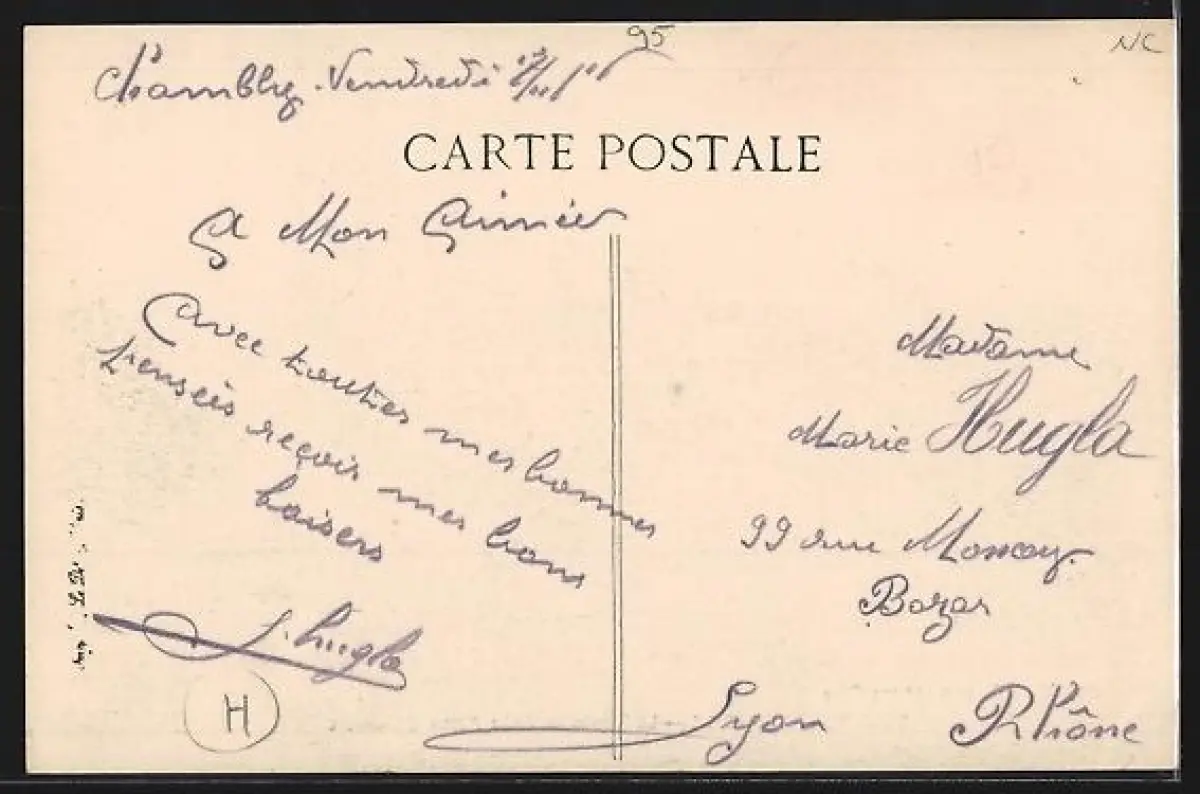 95
NC
Chambly. Vendredi
CARTE POSTALE
A Mon Aimée
avec toutes mes bonnes
pensées reçois mes bons
baisers
J. Hugla
H
Madame
Marie Hugla
99 rue Moncey
Bazar
Lyon Rhône